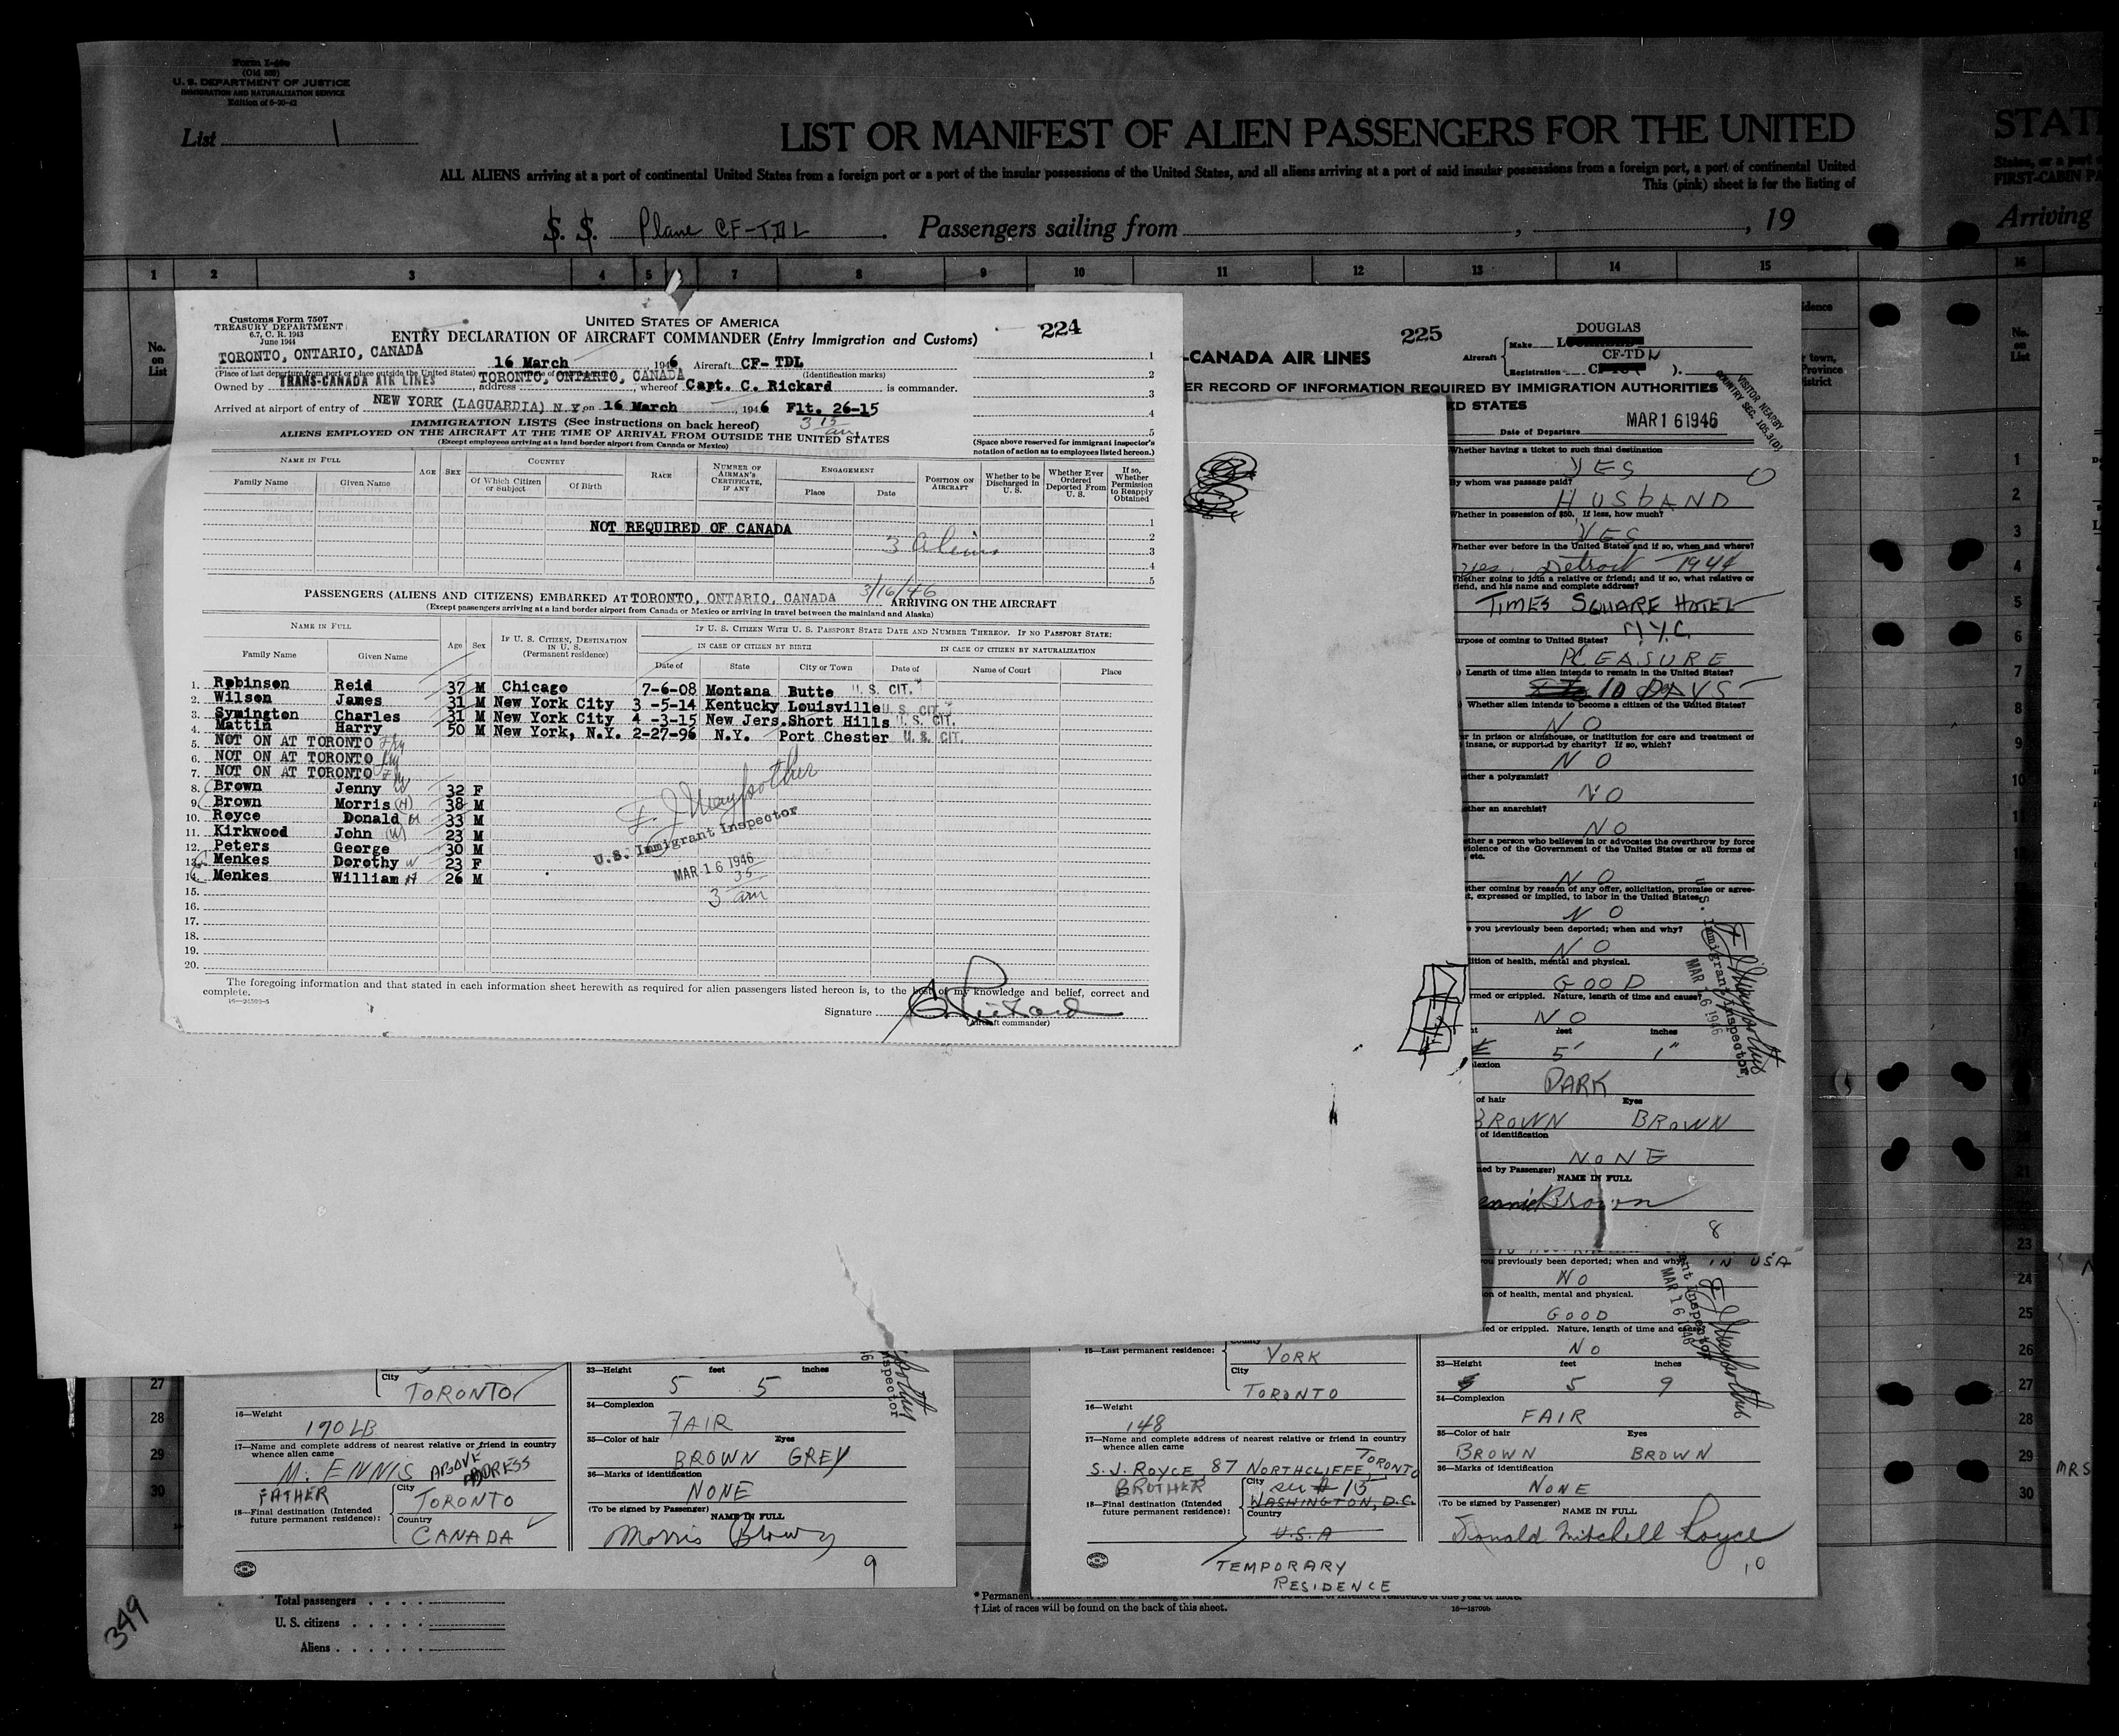 Form I-466
(Old 500)
U. S. DEPARTMENT OF JUSTICE
IMMIGRATION AND NATURALIZATION SERVICE
Edition of 6-20-42
List 1
LIST OR MANIFEST OF ALIEN PASSENGERS FOR THE UNITED
STAT
ALL ALIENS arriving at a port of continental United States from a foreign port or a port of the insular possessions of the United States, and all aliens arriving at a port of said insular possessions from a foreign port, a port of continental United
States, or a port
This (pink) sheet is for the listing of
FIRST-CABIN PA
S. S. Plane CF-TDL Passengers sailing from , , 19
Arriving
1 2 3 4 5 7 8 9 10 11 12 13 14 15 16
No. on List
Customs Form 7507
TREASURY DEPARTMENT
6.7, C. R. 1943
June 1944
UNITED STATES OF AMERICA
224
ENTRY DECLARATION OF AIRCRAFT COMMANDER (Entry Immigration and Customs)
TORONTO, ONTARIO, CANADA 16 March 1946 Aircraft CF-TDL
(Place of last departure from port or place outside the United States) (Identification marks)
Owned by TRANS-CANADA AIR LINES, address TORONTO, ONTARIO, CANADA, whereof Capt. C. Rickard is commander.
Arrived at airport of entry of NEW YORK (LAGUARDIA) N.Y. on 16 March, 1946 Flt. 26-15
3 15 am
IMMIGRATION LISTS (See instructions on back hereof)
ALIENS EMPLOYED ON THE AIRCRAFT AT THE TIME OF ARRIVAL FROM OUTSIDE THE UNITED STATES
(Except employees arriving at a land border airport from Canada or Mexico)
1
2
3
4
5
(Space above reserved for immigrant inspector's notation of action as to employees listed hereon.)
NAME IN FULL
Family Name Given Name
AGE SEX
COUNTRY
Of Which Citizen or Subject Of Birth
RACE
NUMBER OF AIRMAN'S CERTIFICATE, IF ANY
ENGAGEMENT
Place Date
POSITION ON AIRCRAFT
Whether to be Discharged in U. S.
Whether Ever Ordered Deported From U. S.
If so, Whether Permission to Reapply Obtained
NOT REQUIRED OF CANADA
3 Aliens
1
2
3
4
5
PASSENGERS (ALIENS AND CITIZENS) EMBARKED AT TORONTO, ONTARIO, CANADA 3/16/46 ARRIVING ON THE AIRCRAFT
(Except passengers arriving at a land border airport from Canada or Mexico or arriving in travel between the mainland and Alaska)
NAME IN FULL
Family Name Given Name
Age Sex
IF U. S. CITIZEN, DESTINATION IN U. S. (Permanent residence)
IF U. S. CITIZEN WITH U. S. PASSPORT STATE DATE AND NUMBER THEREOF. IF NO PASSPORT STATE:
IN CASE OF CITIZEN BY BIRTH IN CASE OF CITIZEN BY NATURALIZATION
Date of State City or Town Date of Name of Court Place
1. Robinson Reid 37 M Chicago 7-6-08 Montana Butte U. S. CIT.
2. Wilson James 31 M New York City 3 -5-14 Kentucky Louisville U. S. CIT.
3. Symington Charles 31 M New York City 4 -3-15 New Jers. Short Hills U. S. CIT.
4. Mattin Harry 50 M New York, N.Y. 2-27-96 N.Y. Port Chester U. S. CIT.
5. NOT ON AT TORONTO
6. NOT ON AT TORONTO
7. NOT ON AT TORONTO
8. Brown Jenny W 32 F
9. Brown Morris (H) 38 M
10. Royce Donald 33 M
11. Kirkwood John 23 M
12. Peters George 30 M
13. Menkes Dorothy W 23 F
14. Menkes William H 26 M
15.
16.
17.
18.
19.
20.
U.S. Immigrant Inspector
MAR 16 1946
3 35 am
The foregoing information and that stated in each information sheet herewith as required for alien passengers listed hereon is, to the best of my knowledge and belief, correct and complete.
16-24599-5
Signature C. Rickard
(Aircraft commander)
225
-CANADA AIR LINES
Aircraft Make DOUGLAS
Registration CF-TDN
ER RECORD OF INFORMATION REQUIRED BY IMMIGRATION AUTHORITIES
ED STATES
VISITOR NEARBY
COUNTRY SEC. 105.3(D)
Date of Departure MAR 16 1946
Whether having a ticket to such final destination
YES
By whom was passage paid?
HUSBAND
Whether in possession of $50. If less, how much?
YES
Whether ever before in the United States and if so, when and where?
yes. Detroit - 1944
Whether going to join a relative or friend; and if so, what relative or
iend, and his name and complete address?
TIMES SQUARE HOTEL
N.Y.C.
urpose of coming to United States?
PLEASURE
Length of time alien intends to remain in the United States?
10 DAYS
Whether alien intends to become a citizen of the United States?
NO
r in prison or almshouse, or institution for care and treatment of
insane, or supported by charity? If so, which?
NO
ther a polygamist?
NO
ther an anarchist?
NO
ther a person who believes in or advocates the overthrow by force
violence of the Government of the United States or all forms of
, etc.
NO
ther coming by reason of any offer, solicitation, promise or agree-
t, expressed or implied, to labor in the United States.
NO
you previously been deported; when and why?
NO
ition of health, mental and physical.
GOOD
rmed or crippled. Nature, length of time and cause?
NO
feet inches
5' 1"
lexion
DARK
of hair Eyes
BROWN BROWN
of identification
NONE
ned by Passenger)
NAME IN FULL
Brown
8
U.S. Immigrant Inspector
MAR 16 1946
IN USA
you previously been deported; when and why
NO
on of health, mental and physical.
GOOD
ed or crippled. Nature, length of time and cause
NO
MAR 16 1946
City
TORONTO
16—Weight
190 LB
17—Name and complete address of nearest relative or friend in country whence alien came
M. ENNIS ABOVE ADDRESS
FATHER
18—Final destination (Intended future permanent residence):
City TORONTO
Country CANADA
33—Height feet inches
5 5
34—Complexion
FAIR
35—Color of hair Eyes
BROWN GREY
36—Marks of identification
NONE
(To be signed by Passenger)
NAME IN FULL
Morris Brown
9
15—Last permanent residence:
County
YORK
City
TORONTO
16—Weight
148
17—Name and complete address of nearest relative or friend in country whence alien came
S. J. ROYCE, 87 NORTHCLIFFE, TORONTO
BROTHER
18—Final destination (Intended future permanent residence):
City
WASHINGTON, D.C.
Country
U.S.A
TEMPORARY
RESIDENCE
33—Height feet inches
5 9
34—Complexion
FAIR
35—Color of hair Eyes
BROWN BROWN
36—Marks of identification
NONE
(To be signed by Passenger)
NAME IN FULL
Donald Mitchell Royce
10
Total passengers
U. S. citizens
Aliens
* Permanent
† List of races will be found on the back of this sheet.
349
MRS